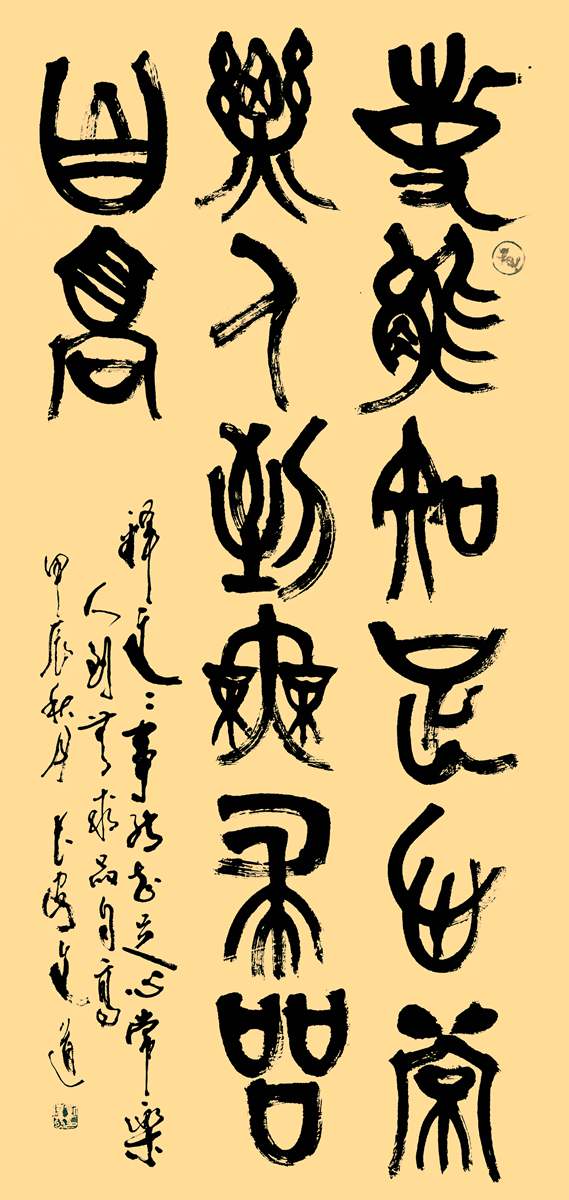 事能知足心常
樂人到無求品
自高
釋文事能知足心常樂
人到無求品自高
甲辰秋月